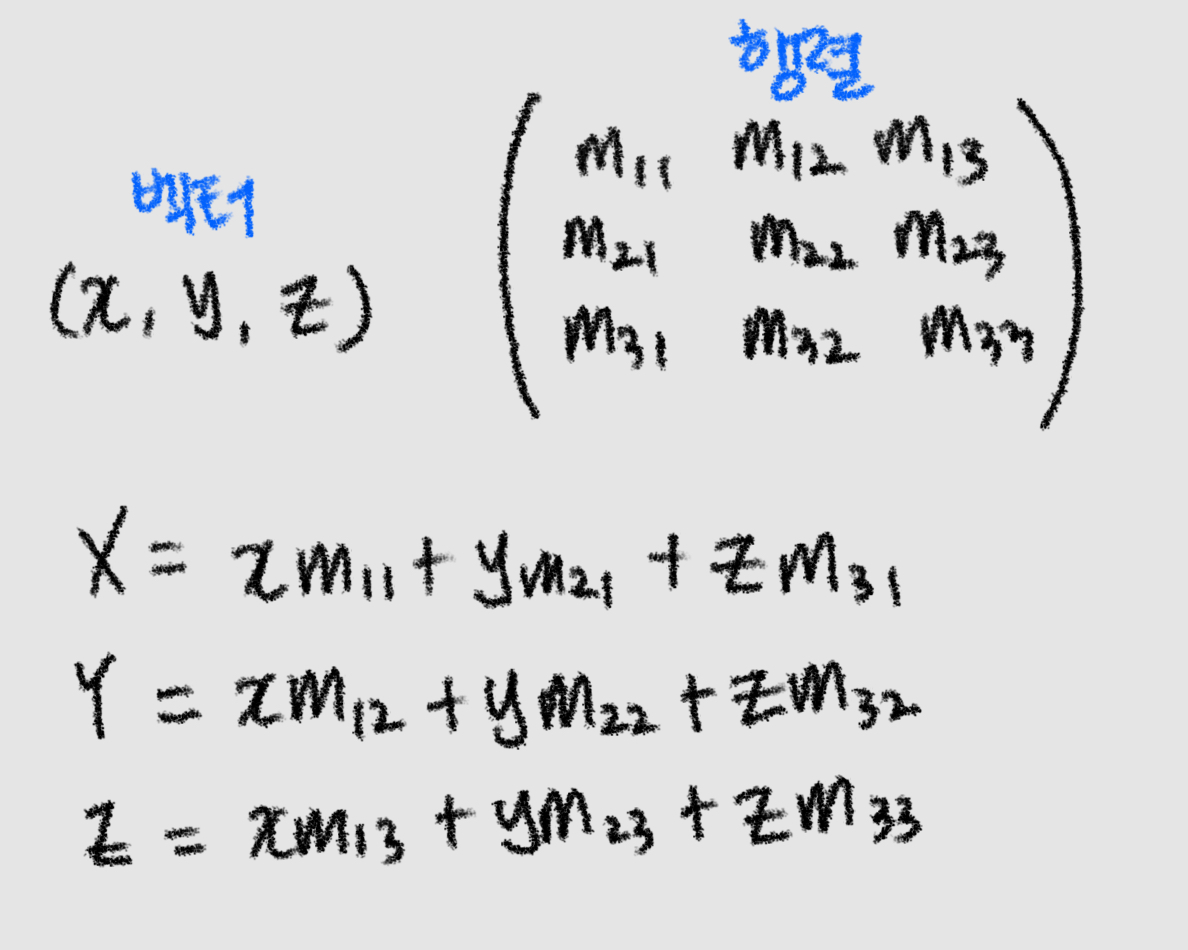 행렬
벡터
(x, y, z)
m₁₁ m₁₂ m₁₃
m₂₁ m₂₂ m₂₃
m₃₁ m₃₂ m₃₃
X = xm₁₁ + ym₂₁ + zm₃₁
Y = xm₁₂ + ym₂₂ + zm₃₂
Z = xm₁₃ + ym₂₃ + zm₃₃